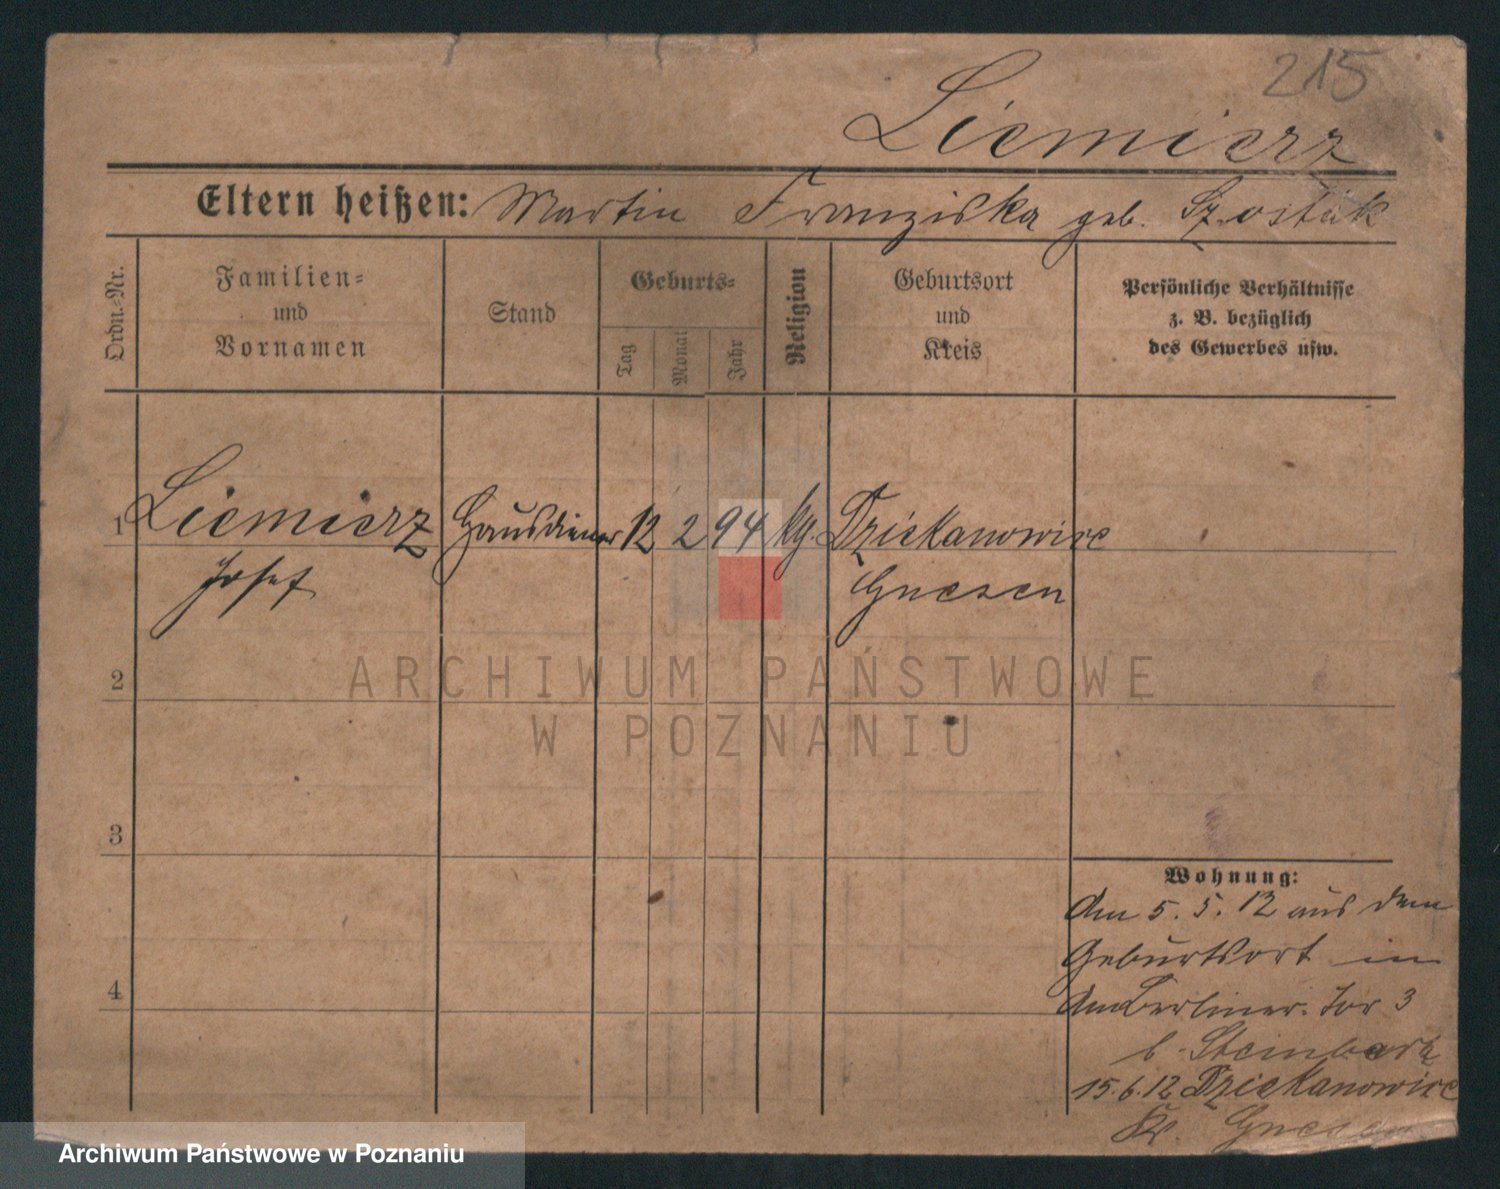 215
Liemierz
Eltern heißen: Martin Franziska geb. Szostak
Ordn.-Nr.
Familien-
und
Vornamen
Stand
Geburts-
Tag
Monat
Jahr
Religion
Geburtsort
und
Kreis
Persönliche Verhältnisse
z. B. bezüglich
des Gewerbes usw.
1 Liemierz Hausdiener 12 2 94 kg. Dziekanowice
Josef Gnesen
ARCHIWUM PAŃSTWOWE
W POZNANIU
2
3
4
Wohnung:
Am 5. 5. 12 aus dem
Geburtsort in
Am Berliner Tor 3
b. Steinbark
15.6.12 Dziekanowice
Kr. Gnesen
Archiwum Państwowe w Poznaniu